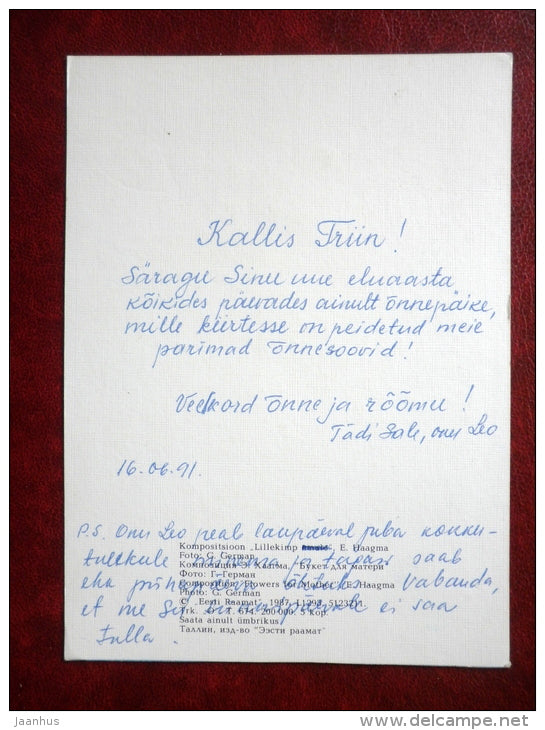 Kallis Triin!
Säragu Sinu uue eluaasta
kõikides päevades ainult õnnepäike,
mille kiirtesse on peidetud meie
parimad õnnesoovid!
Veelkord õnne ja rõõmu!
Tädi Sale, onu Leo
16.06.91.
P.S. Onu Leo peab laupäeval juba kokku-
tulekule ja tagasi saab
Kompositsioon „Lillekimp E. Haagma
Foto: G. German
Композиция Э. Хаагма, "Букет для матери
Фото: Г. Герман
eha õhtuks. Vabanda,
Composition "Flowers for Mother", E. Haagma
Photo: G. German
© „Eesti Raamat", 1987
et me Su ei saa
Trk. T. 674. 200 000. 5 kop.
Saata ainult ümbrikus
tulla.
Таллин, изд-во "Ээсти раамат"
jaanhus
http://www.delcampe.net